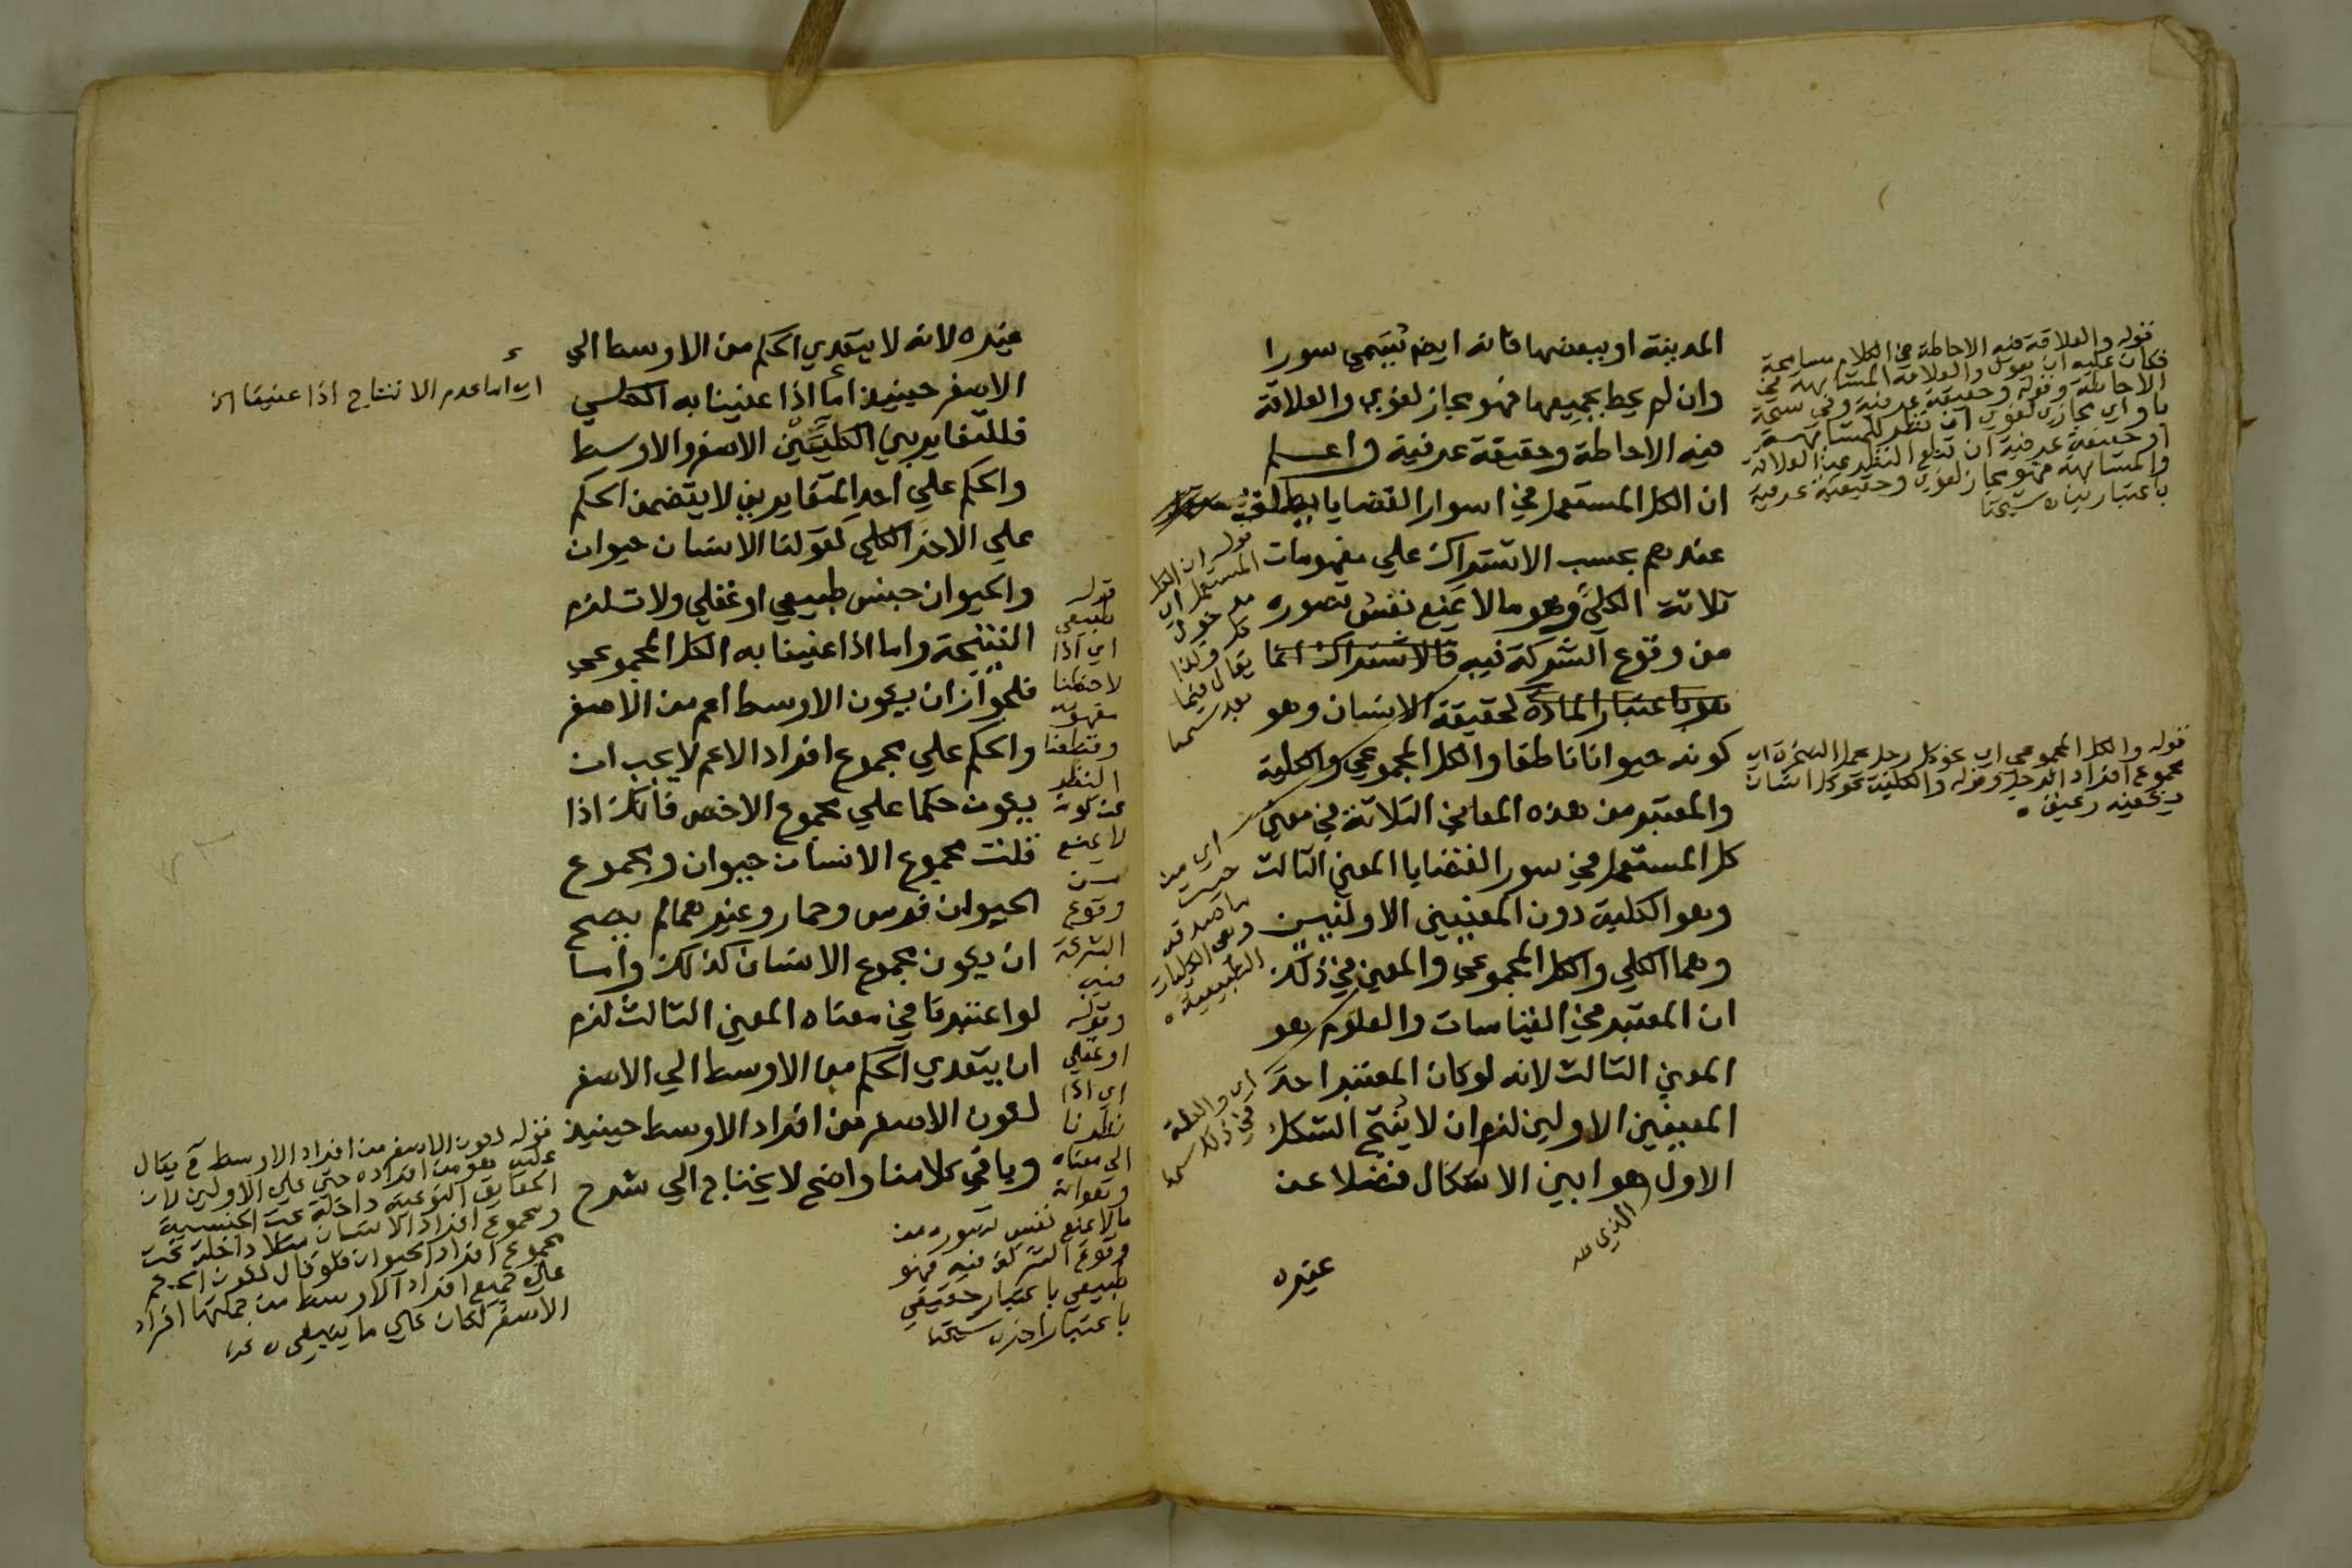 المدينة او ببعضها فانه ايض يسمي سورا
وان لم يحط بجميعها فهو مجاز لغوي والعلاقة
فيه الاحاطة وحقيقة عرفية واعلم
ان الكل المستعمل في اسوار القضايا يطلق
عندهم بحسب الاشتراك علي مفهومات
ثلاثة الكلي وهو ما لا يمنع نفس تصوره
من وقوع الشركة فيه فالاشتراك انما
هو باعتبار المادة كحقيقة الانسان وهو
كونه حيوانا ناطقا والكل المجموعي والكلية
والمعتبر من هذه المعاني الثلاثة في معني
كل المستعمل في سور القضايا المعني الثالث
وهو الكلية دون المعنيين الاولين
وهما الكلي والكل المجموعي والمعني في ذلك
ان المعتبر في القياسات والعلوم هو
المعني الثالث لانه لو كان المعتبر احد
المعنيين الاولين لزم ان لا ينتج الشكل
الاول هو ابين الاشكال فضلا عن
الذي
غيره
قوله والعلاقة فيه الاحاطة في الكلام مسامحة
فكان عليه ان يقول والعلاقة المشابهة في
الاحاطة وقوله وحقيقة عرفية وفي نسخة
باو اي مجاز لغوي ان نظر للمشابهة
او حقيقة عرفية ان قطع النظر عن العلاقة
والمشابهة فهو مجاز لغوي وحقيقة عرفية
باعتبارين شيخنا
قوله والكل المجموعي اي نحو كل رجل يحمل الصخرة اي
مجموع افراد الرجل وقوله والكلية نحو كل انسان
يشبعه رغيف
قوله ان الكل
المستعمل اي
مدخول
كل وكذا
يقال فيما
بعد
اي من
حيث
ما صدقه
وهي الكليات
الطبيعية
اي والعلة
في ذلك
غيره لانه لا يتعدي الحكم من الاوسط الي
الاصغر حينيذ اما اذا عنينا به الكلي
فللتغاير بين الكليين الاصغر والاوسط
والحكم علي احد المتغايرين لا يتضمن الحكم
علي الاخر الكلي كقولنا الانسان حيوان
والحيوان جنس طبيعي او عقلي ولا تستلزم
النتيجة واما اذا عنينا به الكل المجموعي
فلجواز ان يكون الاوسط اعم من الاصغر
والحكم علي مجموع افراد الاعم لا يجب ان
يكون حكما علي مجموع الاخص فانك اذا
قلت مجموع الانسان حيوان ومجموع
الحيوان فرس وحمار وغيرهما لم يصح
ان يكون مجموع الانسان كذلك واما
لو اعتبرنا في معناه المعني الثالث لزم
ان يتعدي الحكم من الاوسط الي الاصغر
لكون الاصغر من افراد الاوسط حينيذ
وباقي كلامنا واضح لا يحتاج الي شرح
اي اما عدم الانتاج اذا عنينا الخ
قوله
طبيعي
اي اذا
لاحظنا
مفهومه
وقطعنا
النظر
عن كونه
لا يمنع
من
وقوع
الشركة
فيه
وقوله
او عقلي
اي اذا
نظرنا
الي معناه
وهو انه
ما لا يمنع نفس تصوره من
وقوع الشركة فيه فهو
طبيعي باعتبار حقيقي
باعتبار اخر شيخنا
قوله لكون الاصغر من افراد الاوسط قد يقال
عليه هو من افراده حتي علي الاولين لان
الحقايق النوعية داخلة تحت الجنسية
ومجموع افراد الانسان مثلا داخلة تحت
مجموع افراد الحيوان فلو قال لكون الحكم
علي جميع افراد الاوسط من جملتها افراد
الاصغر لكان علي ما ينبغي